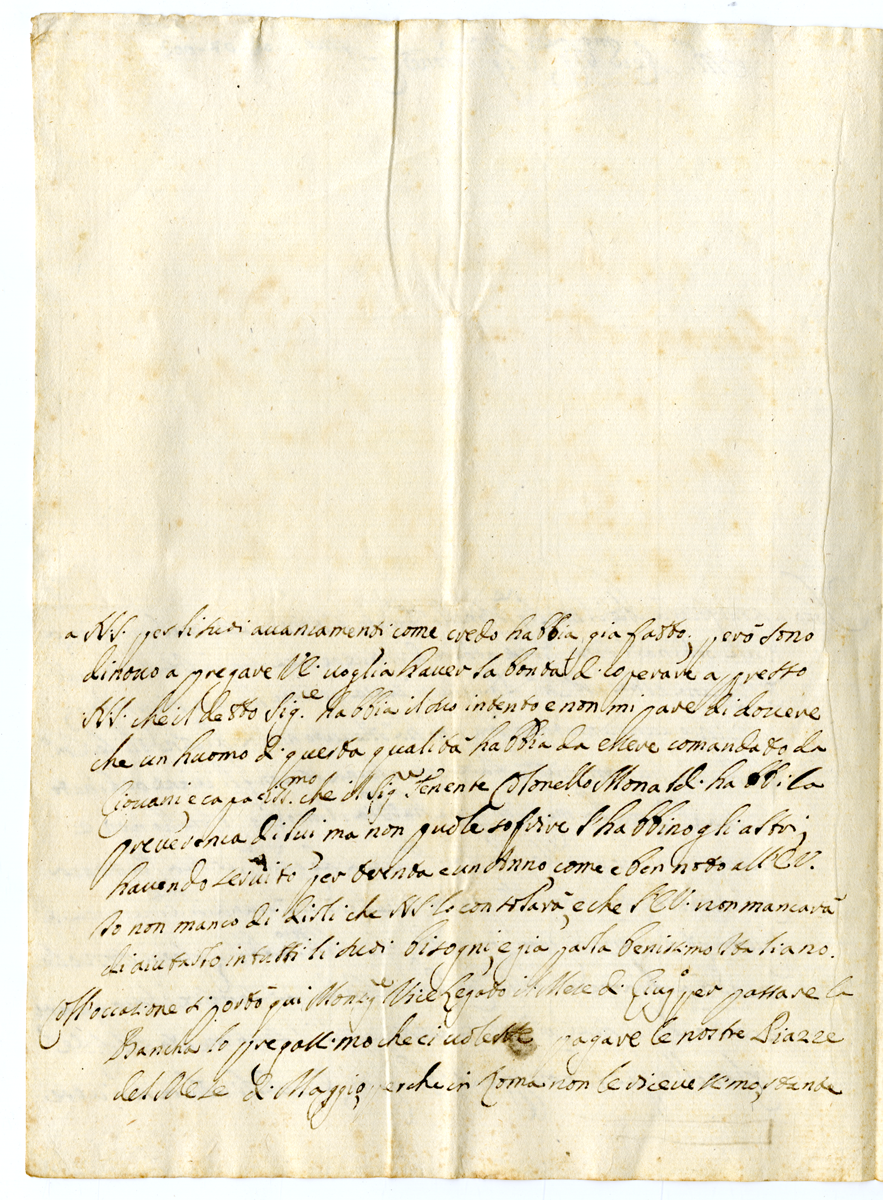 a N.S. per li suoi avanzamenti come credo habbia gia fatto, però sono
di novo a pregare V.E. voglia haver la bontà di coperare a presso
N.S. che il detto Sig.re habbia il suo intento e non mi pare di dovere
che un huomo di questa qualità habbia da essere comandato da
Giovani, e capacis.mo che il Sig.r Tenente Colonello Monaldi habbi la
preverenza di lui ma non puole soffrire l'habbino gli altri,
havendo servito per trenta e un Anno come e ben noto all'E.V.
Io non manco di dirli che N.S. lo consolarà, e che l'E.V. non mancarà
di aiutarlo in tutti li suoi bisogni, e già parla benissmo Italiano.
Coll'occazione si portò qui Monsig.re Vice Legato il Mese di Giug.o per passare la
Bancha lo pregass.mo che ci volesse pagare le nostre Piazze
del Mese di Maggio, perche in Roma non le ricevessemo, stante